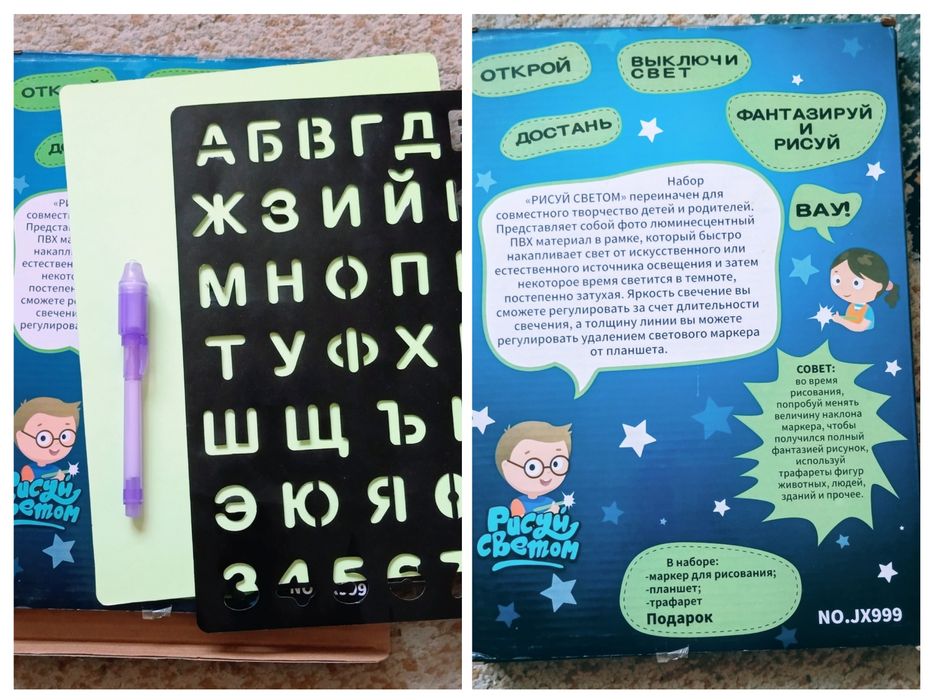 АБВГД
ЖЗИЙ
МНОП
ТУФХ
ШЩЪ
ЭЮЯ
3456
Рисуй
светом
ОТКРОЙ
ВЫКЛЮЧИ
СВЕТ
ДОСТАНЬ
ФАНТАЗИРУЙ
И
РИСУЙ
ВАУ!
Набор
«РИСУЙ СВЕТОМ» переиначен для
совместного творчество детей и родителей.
Представляет собой фото люминесцентный
ПВХ материал в рамке, который быстро
накапливает свет от искусственного или
естественного источника освещения и затем
некоторое время светится в темноте,
постепенно затухая. Яркость свечение вы
сможете регулировать за счет длительности
свечения, а толщину линии вы можете
регулировать удалением светового маркера
от планшета.
СОВЕТ:
во время
рисования,
попробуй менять
величину наклона
маркера, чтобы
получился полный
фантазией рисунок,
используй
трафареты фигур
животных, людей,
зданий и прочее.
Рисуй
светом
В наборе:
-маркер для рисования;
-планшет;
-трафарет
Подарок
NO.JX999